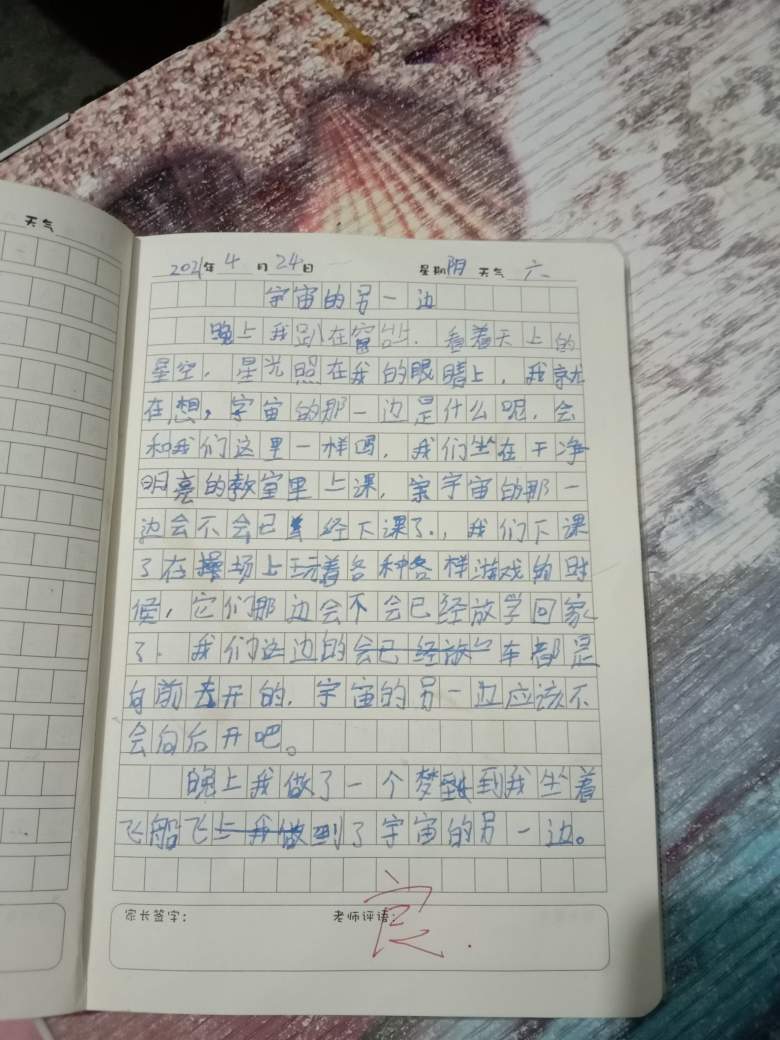 天气
2021年 4 月 24日 星期 阴 天气 六
宇宙的另一边
晚上我趴在窗台上,看着天上的
星空,星光照在我的眼睛上,我就
在想,宇宙的那一边是什么呢,会
和我们这里一样吗,我们坐在干净
明亮的教室里上课,宇宙的那一
边会不会已经下课了,我们下课
了在操场上玩着各种各样游戏的时
候,它们那边会不会已经放学回家
了.我们这边的会已经放车都是
向前去开的,宇宙的另一边应该不
会向后开吧。
晚上我做了一个梦到我坐着
飞船飞上我做到了宇宙的另一边。
家长签字: 老师评语:
良.